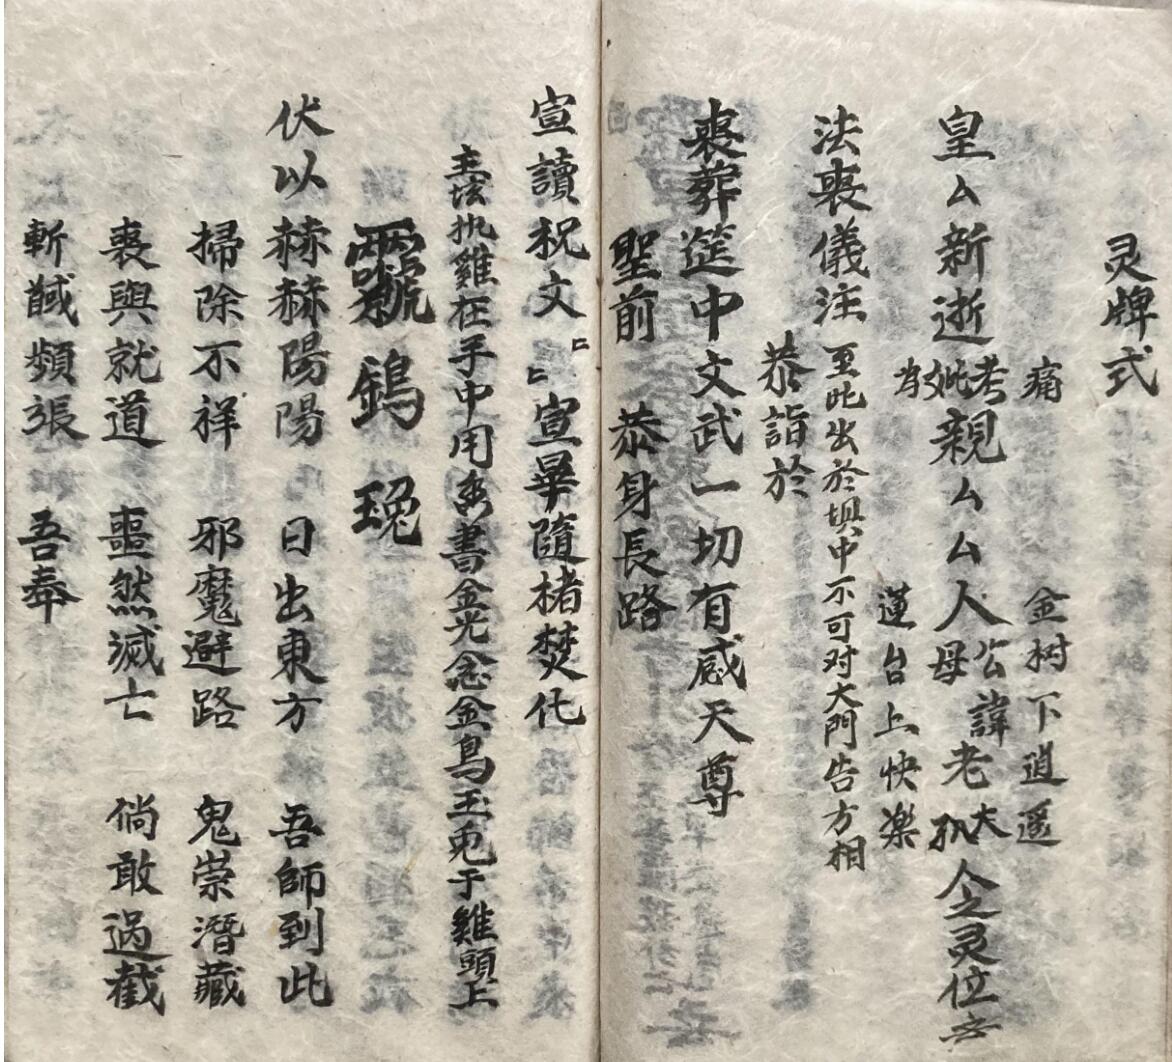 灵牌式
痛 金树下逍遥
皇厶新逝考妣親厶厶人公母諱老大孺令灵位
為 蓮台上快楽
法喪儀注 至此出於垻中不可对大門告方相
恭詣於
喪葬筵中文武一切有感天尊
聖前 恭身長路
宣讀祝文〻〻宣畢隨楮焚化
主坛执雞在手中用香書金光念金鳥玉兎于雞頭上
鎢
伏以赫赫陽陽 日出東方 吾師到此
掃除不祥 邪魔避路 鬼崇潛藏
喪與就道 噩然滅亡 倘敢過截
斬馘頻張 吾奉